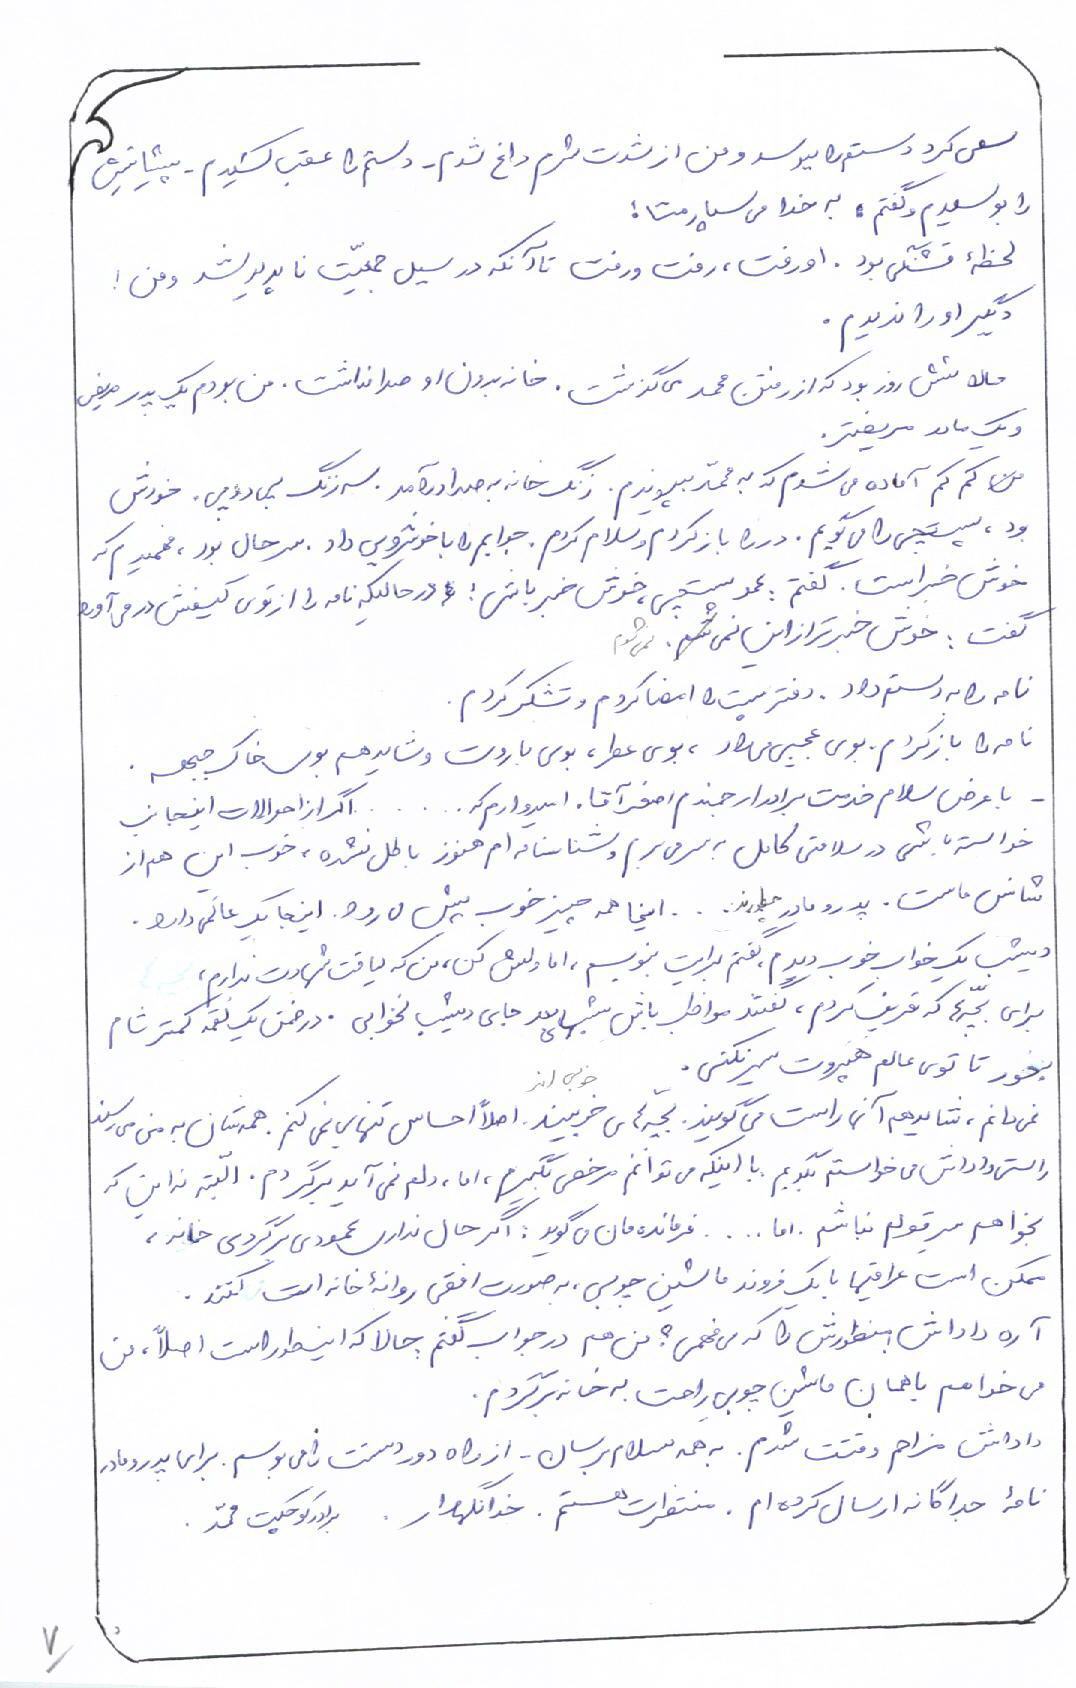 سعی کرد دستم را ببوسد و من از شدت شرم داغ شدم - دستم را عقب کشیدم - پیشانیش
را بوسیدم و گفتم: به خدا می سپارمت!
لحظهٔ قشنگی بود. او رفت، رفت و رفت تا آنکه در سیل جمعیّت ناپدید شد و من!
دیگر او را ندیدم.
حالا شش روز بود که از رفتن محمد می گذشت. خانه بدون او صدا نداشت. من بودم یک پدر مریض
و یک مادر مریضتر.
من کم کم آماده می شدم که به محمّد بپیوندم. زنگ خانه به صدا درآمد. سه زنگ پی در پی. خودش
بود، پستچی را می گویم. در را باز کردم و سلام کردم. جوابم را با خوشرویی داد. سرحال بود، فهمیدم که
خوش خبر است. گفتم: عمو پستچی، خوش خبر باشی! در حالیکه نامه را از توی کیفش در می آورد
گفت: خوش خبرتر از این نمی شوم. نمی شوم
نامه را به دستم داد. دفتر پست را امضا کردم و تشکر کردم.
نامه را باز کردم. بوی عجیبی می داد، بوی عطر، بوی باروت و شاید هم بوی خاک جبهه.
- با عرض سلام خدمت برادر ارجمندم اصغر آقا. امیدوارم که ..... اگر از احوالات اینجانب
خواسته باشی در سلامتی کامل به سر می برم و شناسنامه ام هنوز باطل نشده، خوب این هم از
شانس ماست. پدر و مادر چطورند. . . اینجا همه چیز خوب پیش می رود. اینجا یک عالمی دارد.
دیشب یک خواب خوب دیدم، گفتم برایت بنویسم، اما ولش کن، من که لیاقت شهادت ندارم،
برای بچّه ها که تعریف کردم، گفتند مواظب باش شبهای بعد جای دیشب نخوابی. در ضمن یک لقمه کمتر شام
بخور تا توی عالم هپروت سیر نکنی.
خوبی اند
نمی دانم، شاید هم آنها راست می گویند. بچّه های خوبیند. اصلاً احساس تنهایی نمی کنم. همه شان به من می رسند
راستی داداش می خواستم بگویم با اینکه می توانم مرخصی بگیرم، اما، دلم نمی آید برگردم. البّته نه این که
بخواهم سر قولم نباشم. اما .... فرمانده مان می گوید: اگر حال نداری عمودی برگردی خانه،
ممکن است عراقیها با یک فروند ماشین چوبی، به صورت افقی روانهٔ خانه ات کنند.
آره داداش منظورش را که می فهمی؟ من هم در جواب گفتم حالا که اینطور است اصلاً، من
می خواهم با همان ماشین چوبی راحت به خانه برگردم.
داداش مزاحم وقتت شدم. به همه سلام برسان - از راه دور دستت را می بوسم. برای پدر و مادر
نامهٔ جداگانه ارسال کرده ام. منتظرت هستم. خدانگهدار. برادر کوچکت محمّد.
۷